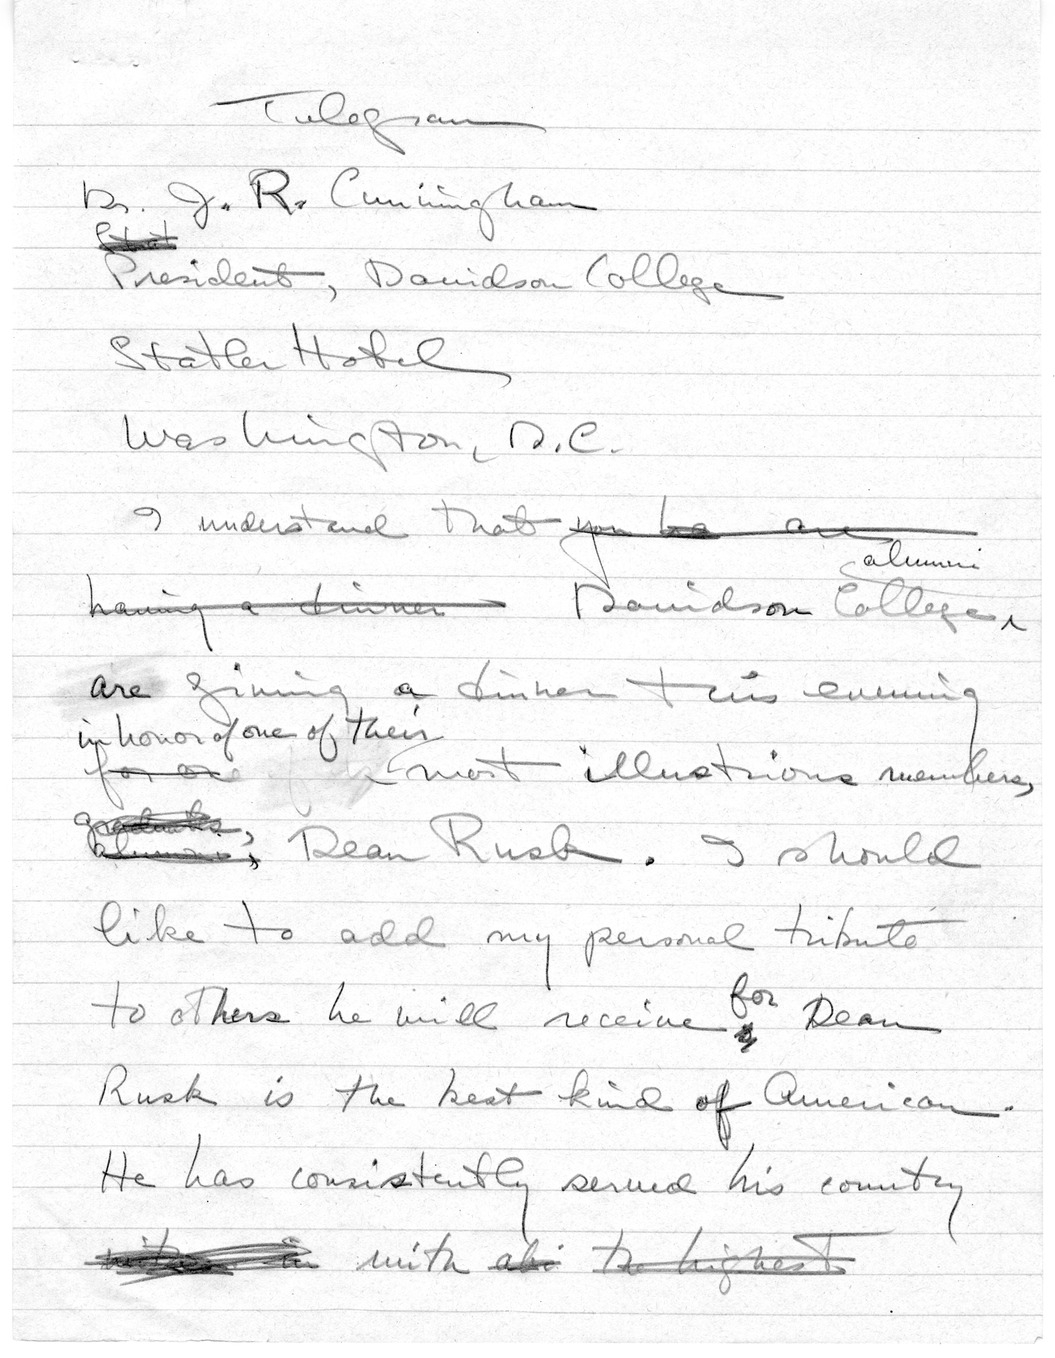 Telegram
Dr. J. R. Cunningham
Stat
President, Davidson College
Statler Hotel
Washington, D.C.
I understand that you ha are
alumni
having a dinner Davidson College,
are giving a dinner this evening
in honor of one of their
for one most illustrious members,
graduates,
alumni, Dean Rusk. I should
like to add my personal tribute
to others he will receive for Dean
Rusk is the best kind of American.
He has consistently served his country
in with abi the highest